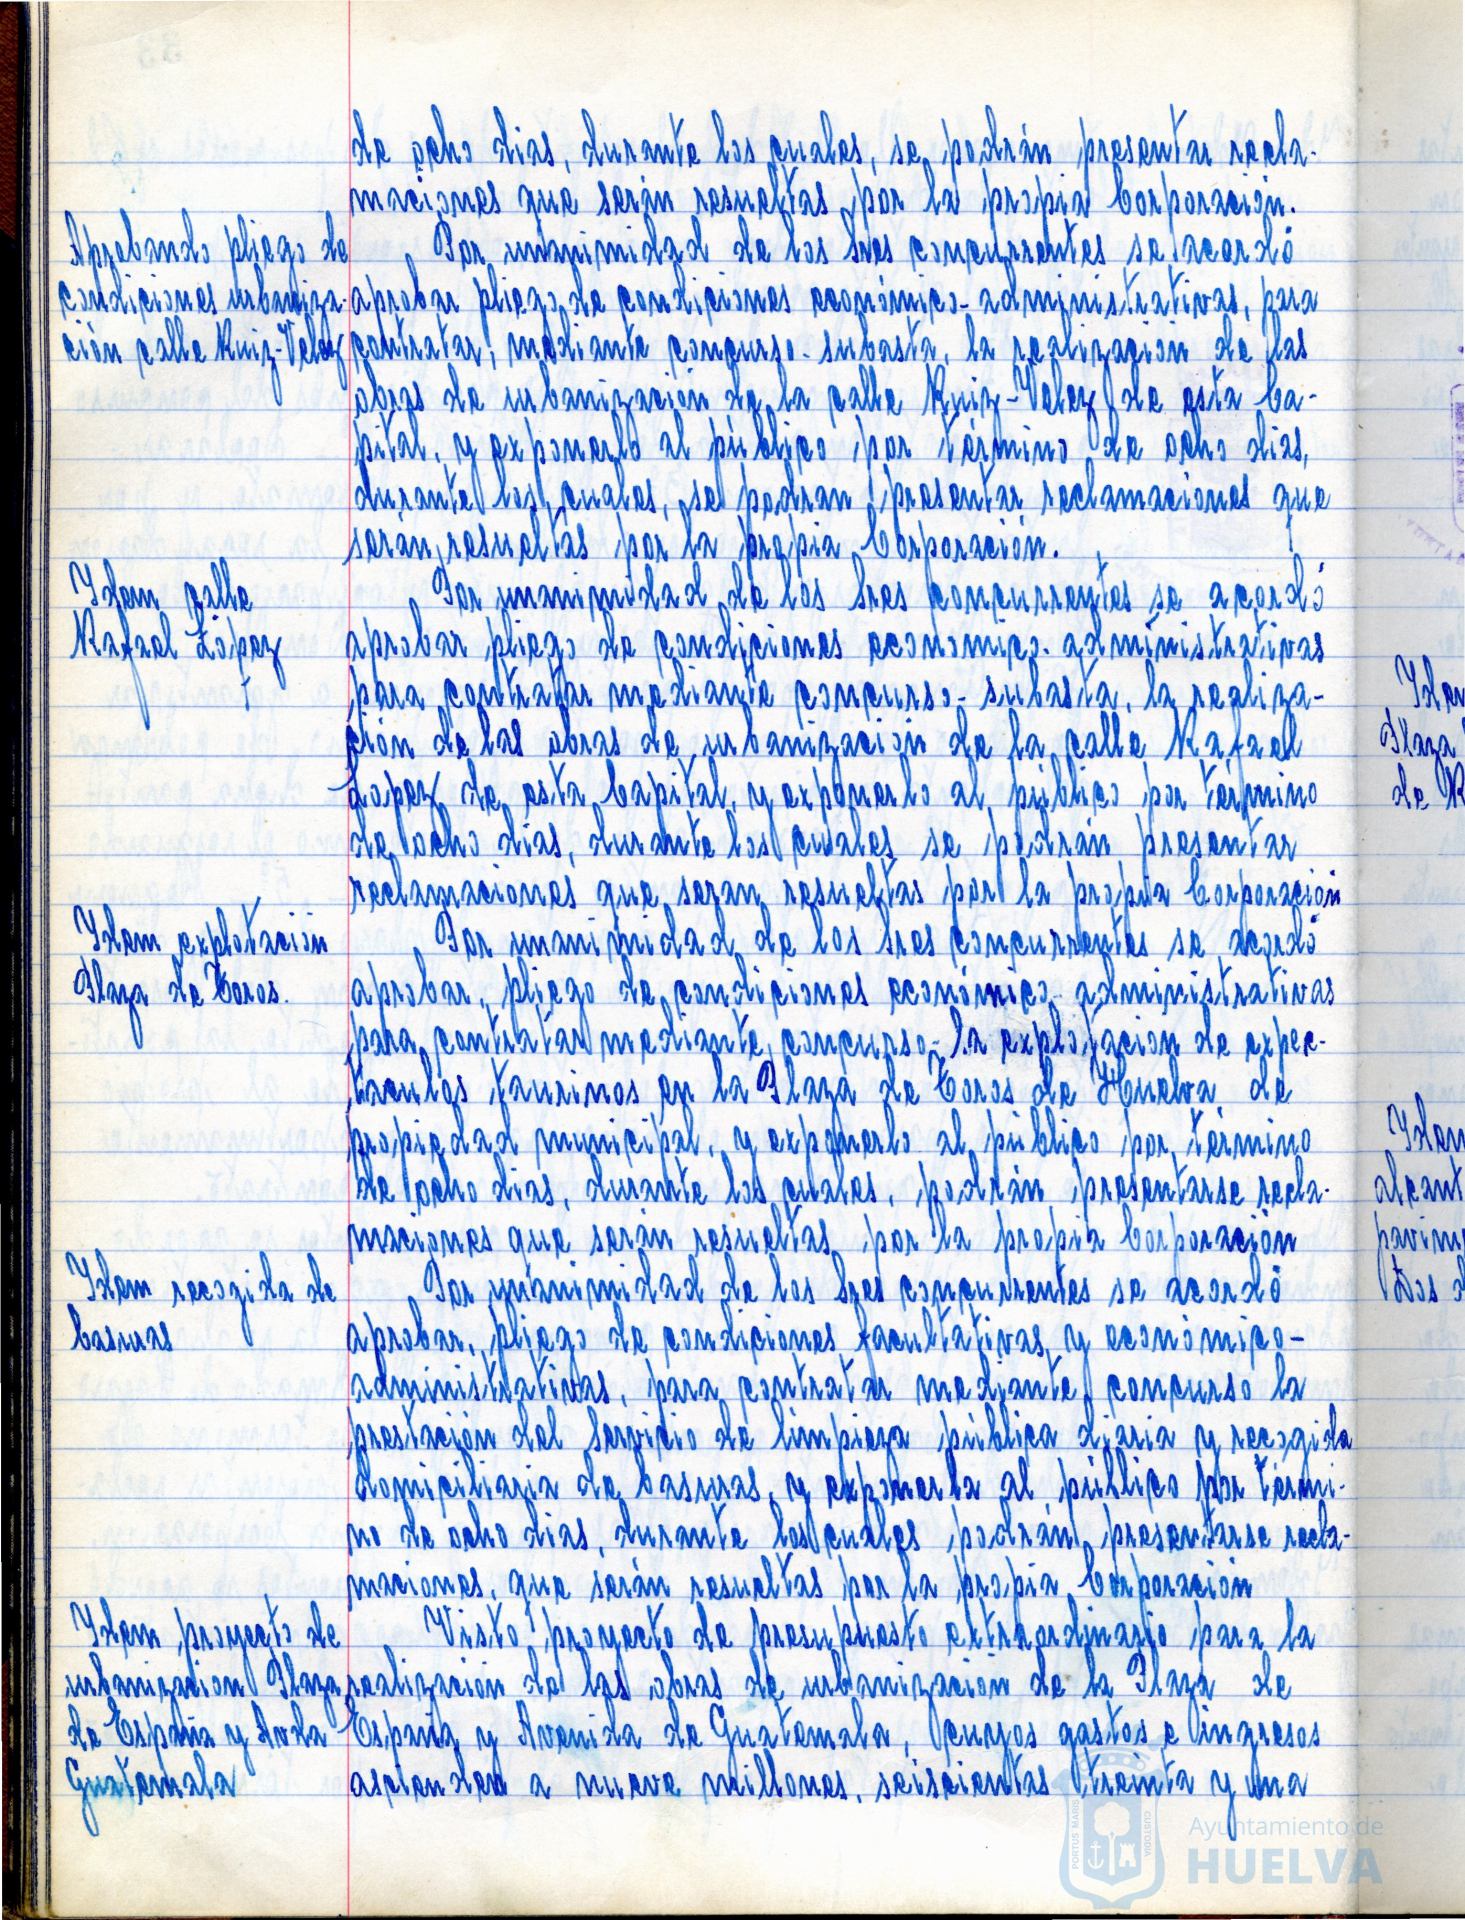 de ocho dias, durante los cuales, se podrán presentar recla-
maciones que serán resueltas por la propia Corporación.
Aprobando pliego de
condiciones urbaniza-
ción calle Ruiz-Velez
Por unanimidad de los Sres concurrentes se acordó
aprobar pliego de condiciones económico-administrativas, para
contratar, mediante concurso-subasta, la realización de las
obras de urbanización de la calle Ruiz-Velez de esta Ca-
pital, y exponerlo al público por término de ocho dias,
durante los cuales, se podrán presentar reclamaciones que
serán resueltas por la propia Corporación.
Idem calle
Rafael López
Por unanimidad de los Sres concurrentes se acordó
aprobar pliego de condiciones económico-administrativas
para contratar mediante concurso-subasta, la realiza-
ción de las obras de urbanización de la calle Rafael
Lopez de esta Capital, y exponerlo al público por término
de ocho dias, durante los cuales se podrán presentar
reclamaciones que seran resueltas por la propia Corporación
Idem explotación
Plaza de Toros.
Por unanimidad de los Sres concurrentes se acordó
aprobar, pliego de condiciones económico-administrativas
para contratar mediante concurso- la explotación de expec-
taculos taurinos en la Plaza de Toros de Huelva, de
propiedad municipal, y exponerlo al público por término
de ocho dias, durante los cuales, podrán presentarse recla-
maciones que serán resueltas por la propia Corporación
Idem recogida de
basuras
Por unanimidad de los Sres concurrentes se acordó
aprobar, pliego de condiciones facultativas y económico-
administrativas, para contratar mediante concurso la
prestación del Servicio de limpieza pública diaria y recogida
domiciliaria de basuras, y exponerla al público por térmi-
no de ocho dias, durante los cuales podrán presentarse recla-
maciones, que serán resueltas por la propia Corporación
Idem proyecto de
urbanizacion Plaza
de España y Avda
Guatemala
Visto proyecto de presupuesto extraordinario para la
realización de las obras de urbanización de la Plaza de
España y Avenida de Guatemala, cuyos gastos e ingresos
ascienden a nueve millones, seiscientas treinta y una
Idem
Plaza
de
Idem
Ayuntamiento de
HUELVA
PORTUS MARIS
CUSTODIA